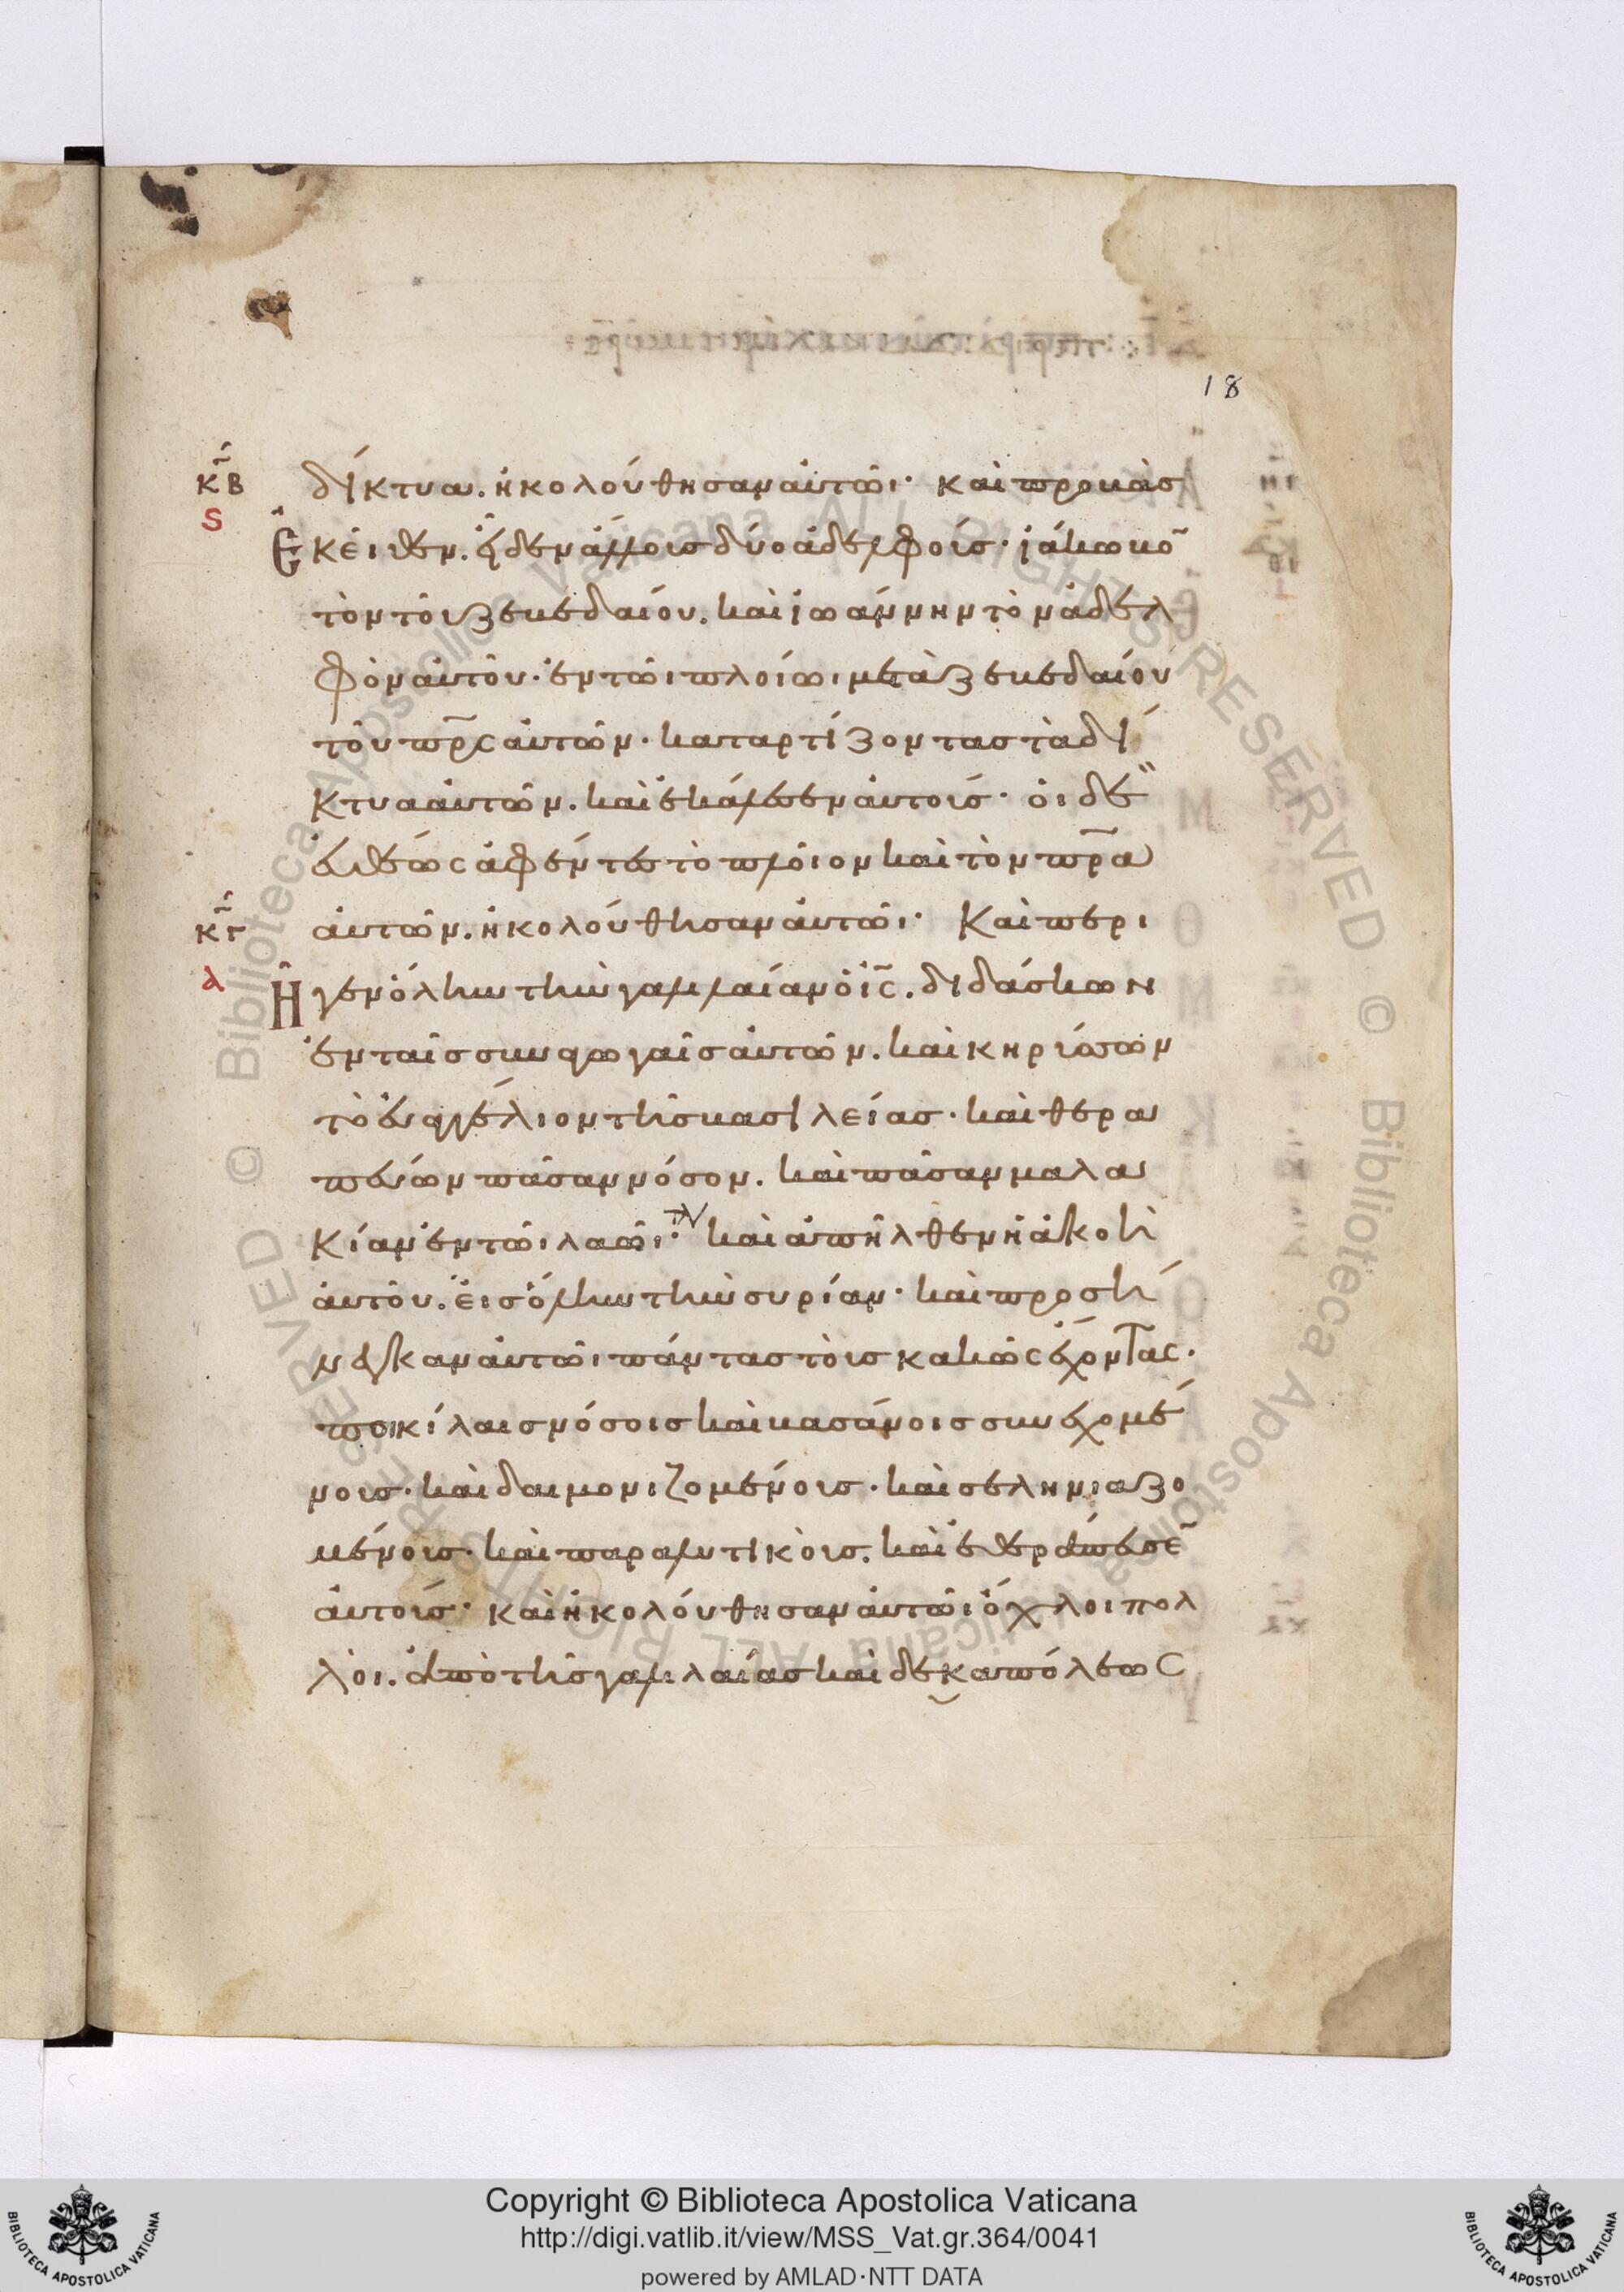 18
κ̅β δίκτυα. ἠκολούθησαν αὐτῶι· καὶ προβὰσ
ς ἐκεῖθεν. εἶδεν ἄλλουσ δύο ἀδελφούσ· ἰάκωβο̅
τὸν τοῦ ζεβεδαίου. καὶ ἰωάννην τὸν ἀδελ
φὸν αὐτοῦ· ἐν τῶι πλοίωι μετὰ ζεβεδαίου
τοῦ π̅ρ̅ς αὐτῶν· καταρτίζοντασ τὰ δί
κτυα αὐτῶν. καὶ ἐκάλεσεν αὐτούσ· οἱ δὲ
εὐθέως ἀφέντεσ τὸ πλοῖον καὶ τὸν π̅ρ̅α
κ̅γ αὐτῶν. ἠκολούθησαν αὐτῶι· Καὶ περι
α ῆγεν ὅλην τὴν γαλιλαίαν ὁ ι̅ς̅. διδάσκων
ἐν ταῖσ συναγωγαῖσ αὐτῶν. καὶ κηρύσσων
τὸ εὐαγγέλιον τῆσ βασιλείασ· καὶ θερα
πεύων πᾶσαν νόσον. καὶ πᾶσαν μαλα
κίαν ἐν τῶι λαῶι· καὶ ἀπῆλθεν ἡ ἀκοὴ
αὐτοῦ. εἰσ ὅλην τὴν συρίαν· καὶ προσή
νεγκαν αὐτῶι πάντασ τοὺσ κακῶς ἔχοντας·
ποικίλαισ νόσοισ καὶ βασάνοισ συνεχομέ
νουσ· καὶ δαιμονιζομένουσ· καὶ σεληνιαζο
μένουσ· καὶ παραλυτικοὺσ. καὶ ἐθεράπευσε̅
αὐτούσ· καὶ ἠκολούθησαν αὐτῶι ὄχλοι πολ
λοὶ. ἀπὸ τῆσ γαλιλαίασ καὶ δεκαπόλεως
Copyright © Biblioteca Apostolica Vaticana
http://digi.vatlib.it/view/MSS_Vat.gr.364/0041
powered by AMLAD·NTT DATA
BIBLIOTECA APOSTOLICA VATICANA
BIBLIOTECA APOSTOLICA VATICANA